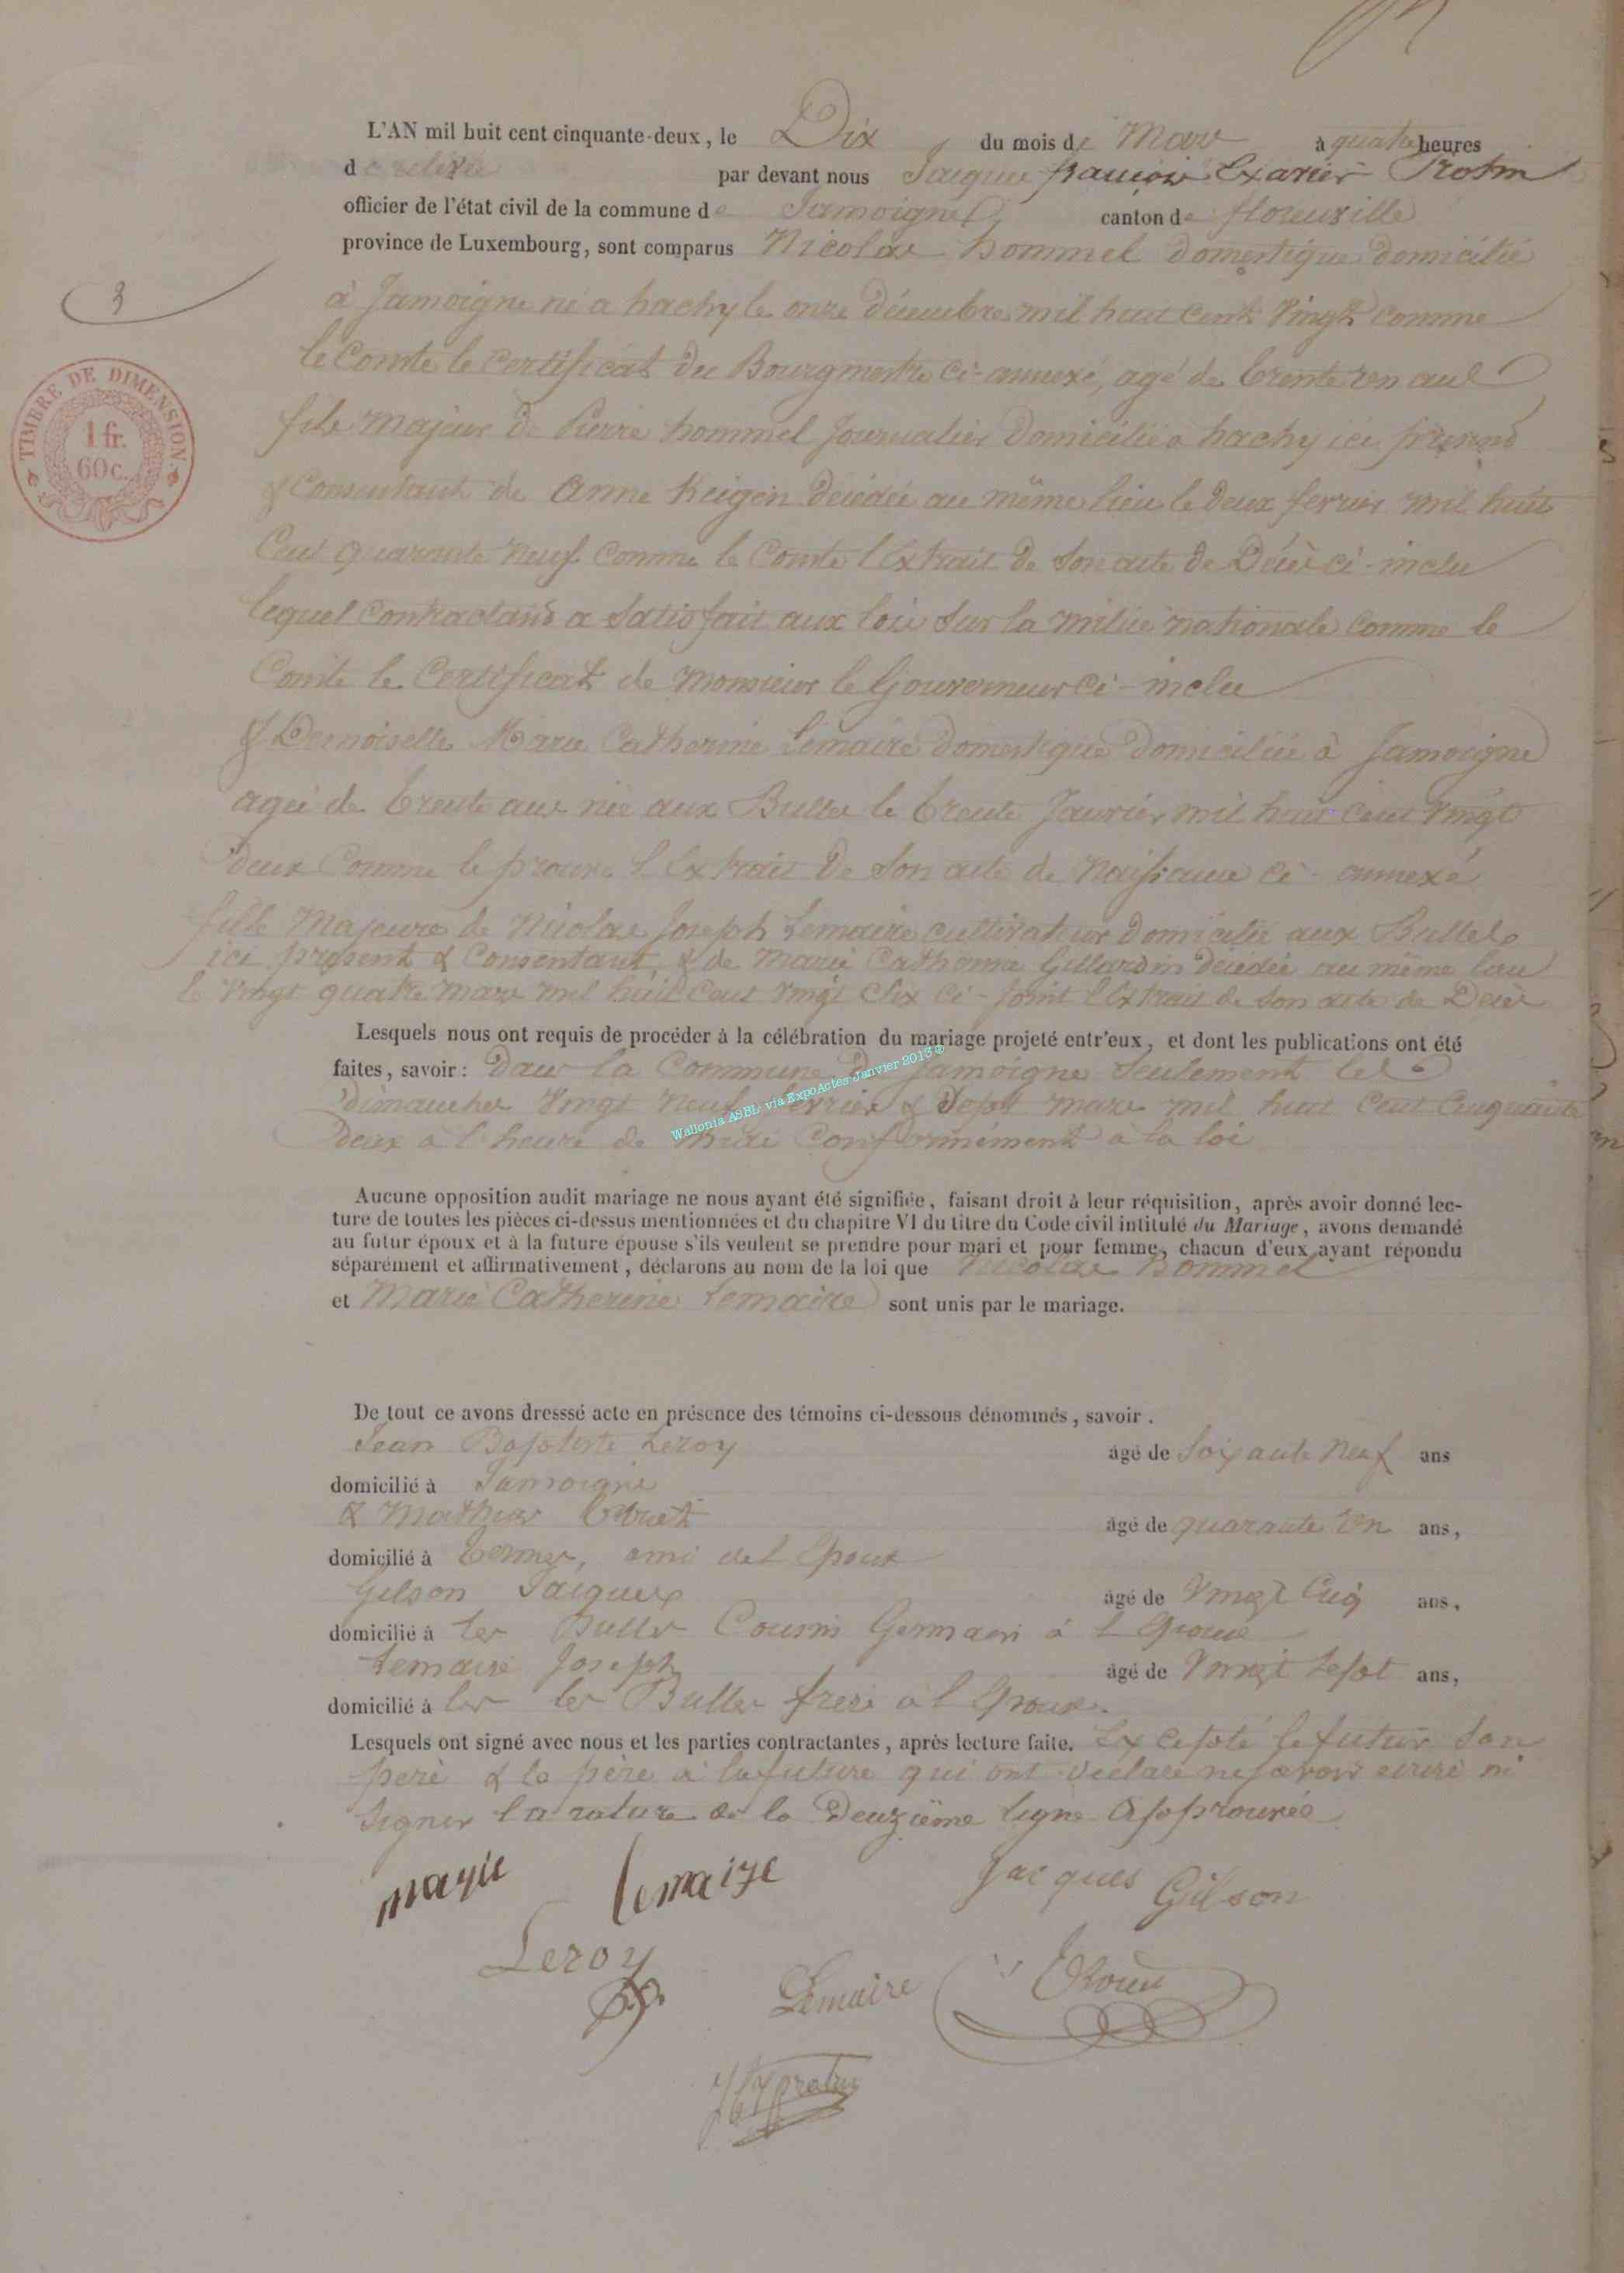 L'AN mil huit cent cinquante-deux, le Dix du mois de Mars à quatre heures
de par devant nous Jacques françois Exavier
officier de l'état civil de la commune de Jamoigne canton de florenville
province de Luxembourg, sont comparus Nicolas hommel domestique domicilié
3
à Jamoigne né a hachy le onze Décembre mil huit cent vingt comme
le Comte le Certificat du Bourgmestre ci-annexé, agé de trente un ans
TIMBRE DE DIMENSION.
1 fr.
60c.
fils majeur de Pierre hommel Journalier Domicilié a hachy ici présend
& Consentant de Anne Keigen décédée au même lieu le Deux fevrier mil huit
Cent quarante neuf comme le Comte l'Extrait de Son acte de Décès ci-inclu
lequel Contractand a Satisfait aux lois Sur la milice nationale comme le
Comte le Certificat de Monsieur le Gouverneur ci-inclu
& Demoiselle Marie Catherine Lemaire domestique domiciliée à Jamoigne
agée de trente ans née aux Bulles le trente Janvier mil huit cent vingt
deux Comme le prouve l'Extrait De Son acte de Naissance ci-annexé
fille Majeure de Nicolas Joseph Lemaire cultivateur domicilié aux Bulles
ici present & Consentant, & de Marie Catherine Gillardin décédée au même lieu
le vingt quatre mars mil huit cent vingt Six ci-joint l'Extrait de son acte de Décès
Lesquels nous ont requis de procéder à la célébration du mariage projeté entr'eux, et dont les publications ont été
faites, savoir: Dans la Commune De Jamoigne Seulement les
dimanches vingt neuf fevrier & Sept mars mil huit Cent Cinquante
Deux à l'heure de midi Conformément à la loi
Wallonia ASBL via ExpoActes Janvier 2013 ©
Aucune opposition audit mariage ne nous ayant été signifiée, faisant droit à leur réquisition, après avoir donné lec-
ture de toutes les pièces ci-dessus mentionnées et du chapitre VI du titre du Code civil intitulé du Mariage, avons demandé
au futur époux et à la future épouse s'ils veulent se prendre pour mari et pour femme, chacun d'eux ayant répondu
séparément et affirmativement, déclarons au nom de la loi que Nicolas hommel
et Marie Catherine Lemaire sont unis par le mariage.
De tout ce avons dresssé acte en présence des témoins ci-dessous dénommés, savoir.
Jean Baptiste Leroy âgé de Soixante Neuf ans
domicilié à Jamoigne
& Mathias âgé de quarante un ans,
domicilié à termes, ami de l Epoux
Gilson Jacques âgé de vingt Cinq ans,
domicilié à les Bulles Cousin Germain à l Epouse
Lemaire Joseph âgé de vingt Sept ans,
domicilié à les les Bulles frere à l Epouse.
Lesquels ont signé avec nous et les parties contractantes, après lecture faite. Excepté le futur Son
père & le père à la future qui ont déclaré ne savoir écrire ni
Signer la rature de la Deuzième ligne Approuvée
marie lemaire Jacques Gilson
Leroy Lemaire